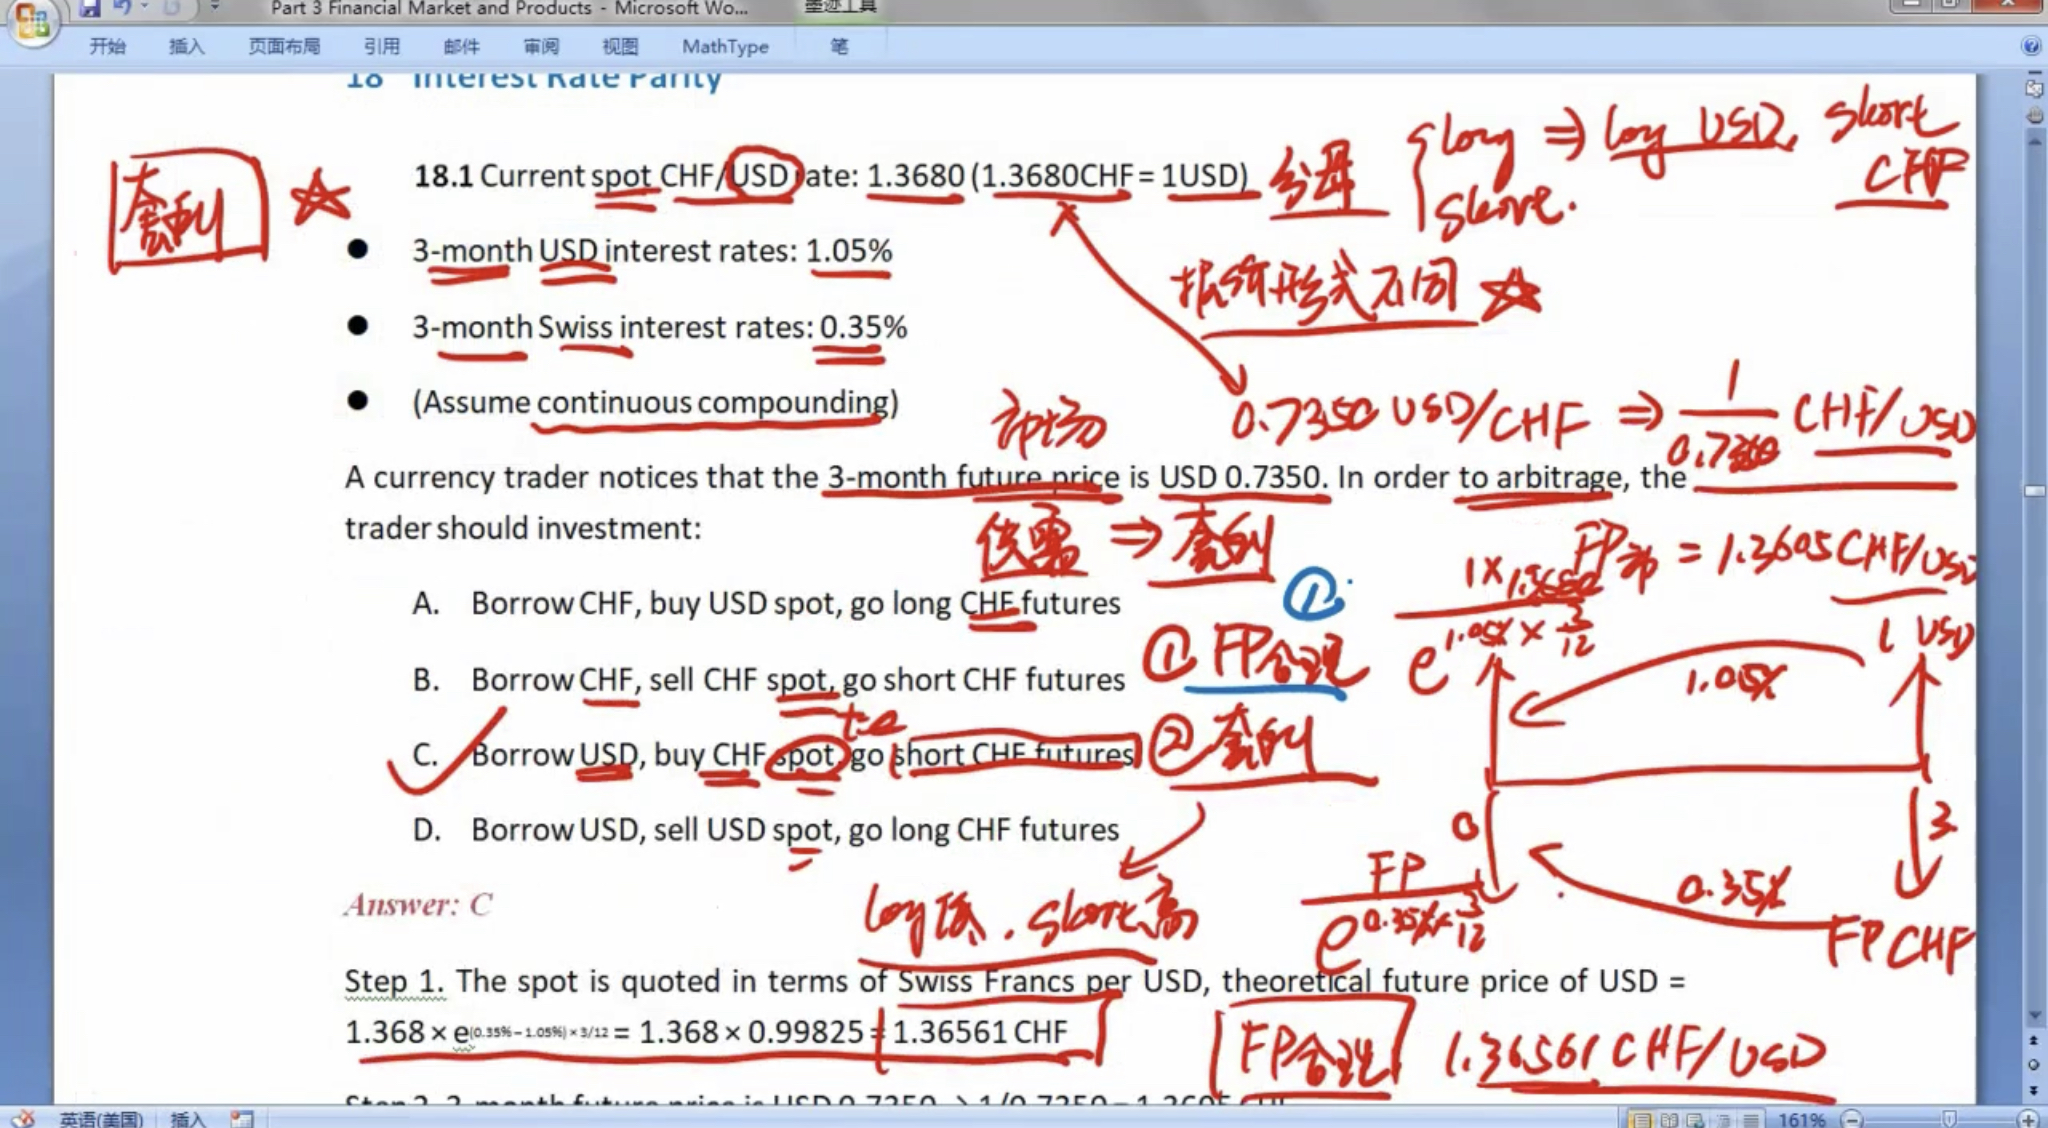 Part 3 Financial Market and Products - Microsoft Wo...
墨迹工具
开始 插入 页面布局 引用 邮件 审阅 视图 MathType 笔
18 Interest Rate Parity
套利
18.1 Current spot CHF/USD rate: 1.3680 (1.3680CHF = 1USD)
分母
long ⇒ long USD, short CHF
short.
3-month USD interest rates: 1.05%
报价形式不同
3-month Swiss interest rates: 0.35%
(Assume continuous compounding)
市场
0.7350 USD/CHF ⇒ 1/0.7350 CHF/USD
A currency trader notices that the 3-month future price is USD 0.7350. In order to arbitrage, the
trader should investment:
供需 ⇒ 套利
FP市 = 1.3605 CHF/USD
A. Borrow CHF, buy USD spot, go long CHF futures
①
B. Borrow CHF, sell CHF spot, go short CHF futures
① FP合理
1×1.3680
e^1.05%×3/12
1 USD
1.05%
C. Borrow USD, buy CHF spot, go short CHF futures
② 套利
D. Borrow USD, sell USD spot, go long CHF futures
0
3
FP
e^0.35%×3/12
0.35%
FP CHF
Answer: C
long低, short高
Step 1. The spot is quoted in terms of Swiss Francs per USD, theoretical future price of USD =
1.368 × e(0.35%−1.05%)×3/12 = 1.368 × 0.99825 = 1.36561 CHF
FP合理 1.36561 CHF/USD
Step 2. 3-month future price is USD 0.7350 → 1/0.7350 = 1.3605 CHF
英语(美国) 插入 161%